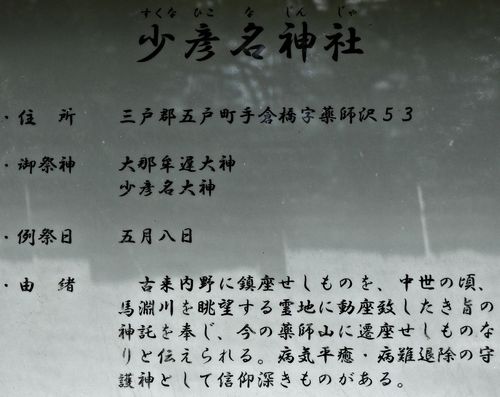 すくな ひこ な じん じゃ
少彦名神社
・住 所 三戸郡五戸町手倉橋字薬師沢53
・御祭神 大那牟遅大神
少彦名大神
・例祭日 五月八日
・由 緒 古来内野に鎮座せしものを、中世の頃、
馬淵川を眺望する霊地に動座致したき旨の
神託を奉じ、今の薬師山に遷座せしものな
りと伝えられる。病気平癒・病難退除の守
護神として信仰深きものがある。